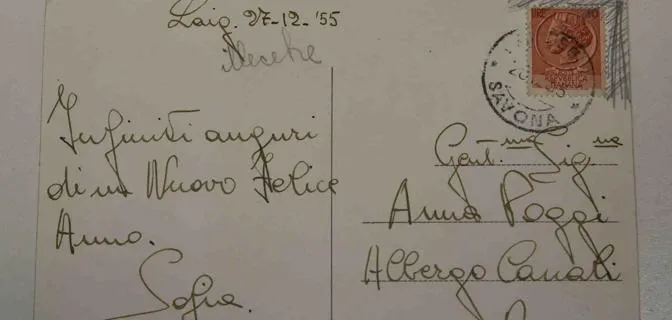 Laig. 27-12-'55
Infiniti auguri
di un Nuovo Felice
Anno.
Sofia.
LIRE 10
SAVONA
Gent.ma Sig.na
Anna Poggi
Albergo Canali